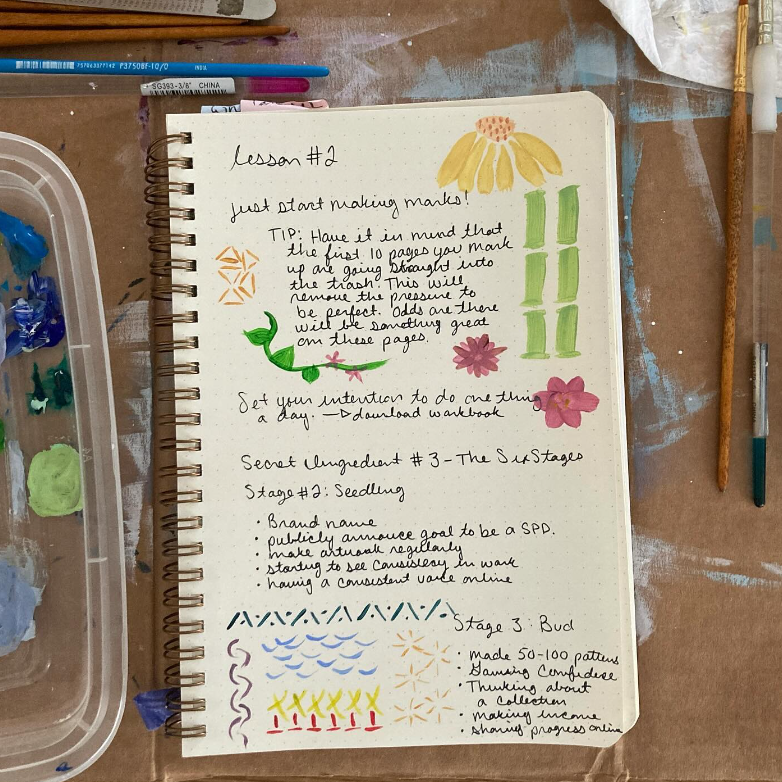 757063377142 P37508F-10/0 INDIA
SG393-3/8" CHINA
lesson #2
just start making marks!
TIP: Have it in mind that
the first 10 pages you mark
up are going straight into
the trash. This will
remove the pressure to
be perfect. Odds are there
will be something great
on these pages.
Set your intention to do one thing
a day. → download workbook
Secret Ingredient #3 - The Six Stages
Stage #2: Seedling
• Brand name
• publicly announce goal to be a SPD.
• make artwork regularly
• starting to see consistency in work
• having a consistent voice online
Stage 3: Bud
• made 50-100 patterns
• Gaining Confidence
• Thinking about
a collection
• making income
• sharing progress online